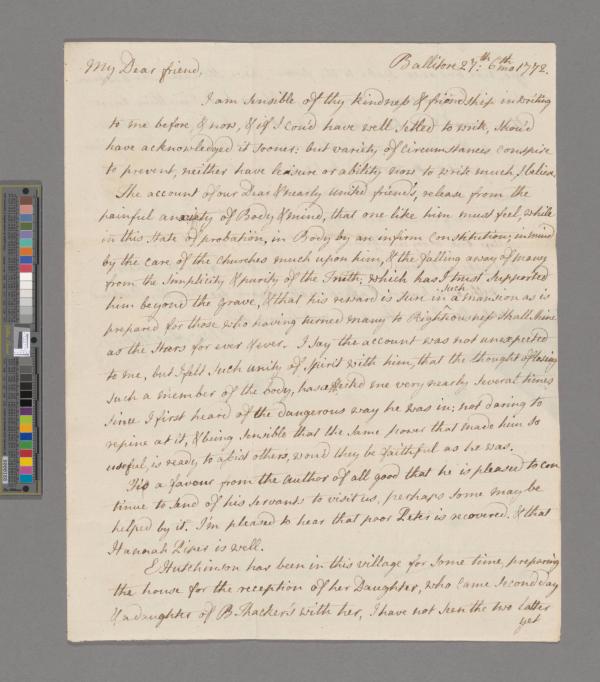 My Dear friend,
Ballitore 27th: 6th mo 1772.
I am sensible of thy kindness & friendship in writing
to me before, & now, & if I cou'd have well settled to write, shou'd
have acknowledged it sooner: but variety of circumstances conspire
to prevent, neither have leisure or ability now to write much,
The account of our Dear & nearly united friend's, release from the
painful anxiety of Body & mind, that one like him must feel, while
in this state of probation, in Body by an infirm constitution; in mind
by the care of the churches much upon him, & the falling away of many
from the simplicity & purity of the Truth; which has I trust supported
him beyond the grave, & that his reward is sure in such a mansion as is
prepared for those who having turned many to Righteousness shall shine
as the Stars for ever & ever. I say the account was not unexpected
to me, but I felt such unity of spirit with him, that the thought of losing
such a member of the body, has affected me very nearly several times
since I first heard of the dangerous way he was in; not daring to
repine at it, & being sensible that the same power that made him so
useful, is ready, to assist others, wou'd they be faithful as he was.
Tis a favour from the author of all good that he is pleased to con
tinue to send of his servants to visit us, perhaps some may be
helped by it. I'm pleased to hear that poor Peter is recovered. & that
Hannah Piper is well.
E Hutchinson has been in this village for some time, preparing
the house for the reception of her Daughter, who came second day
& a daughter of B. Thacker's with her, I have not seen the two latter
yet